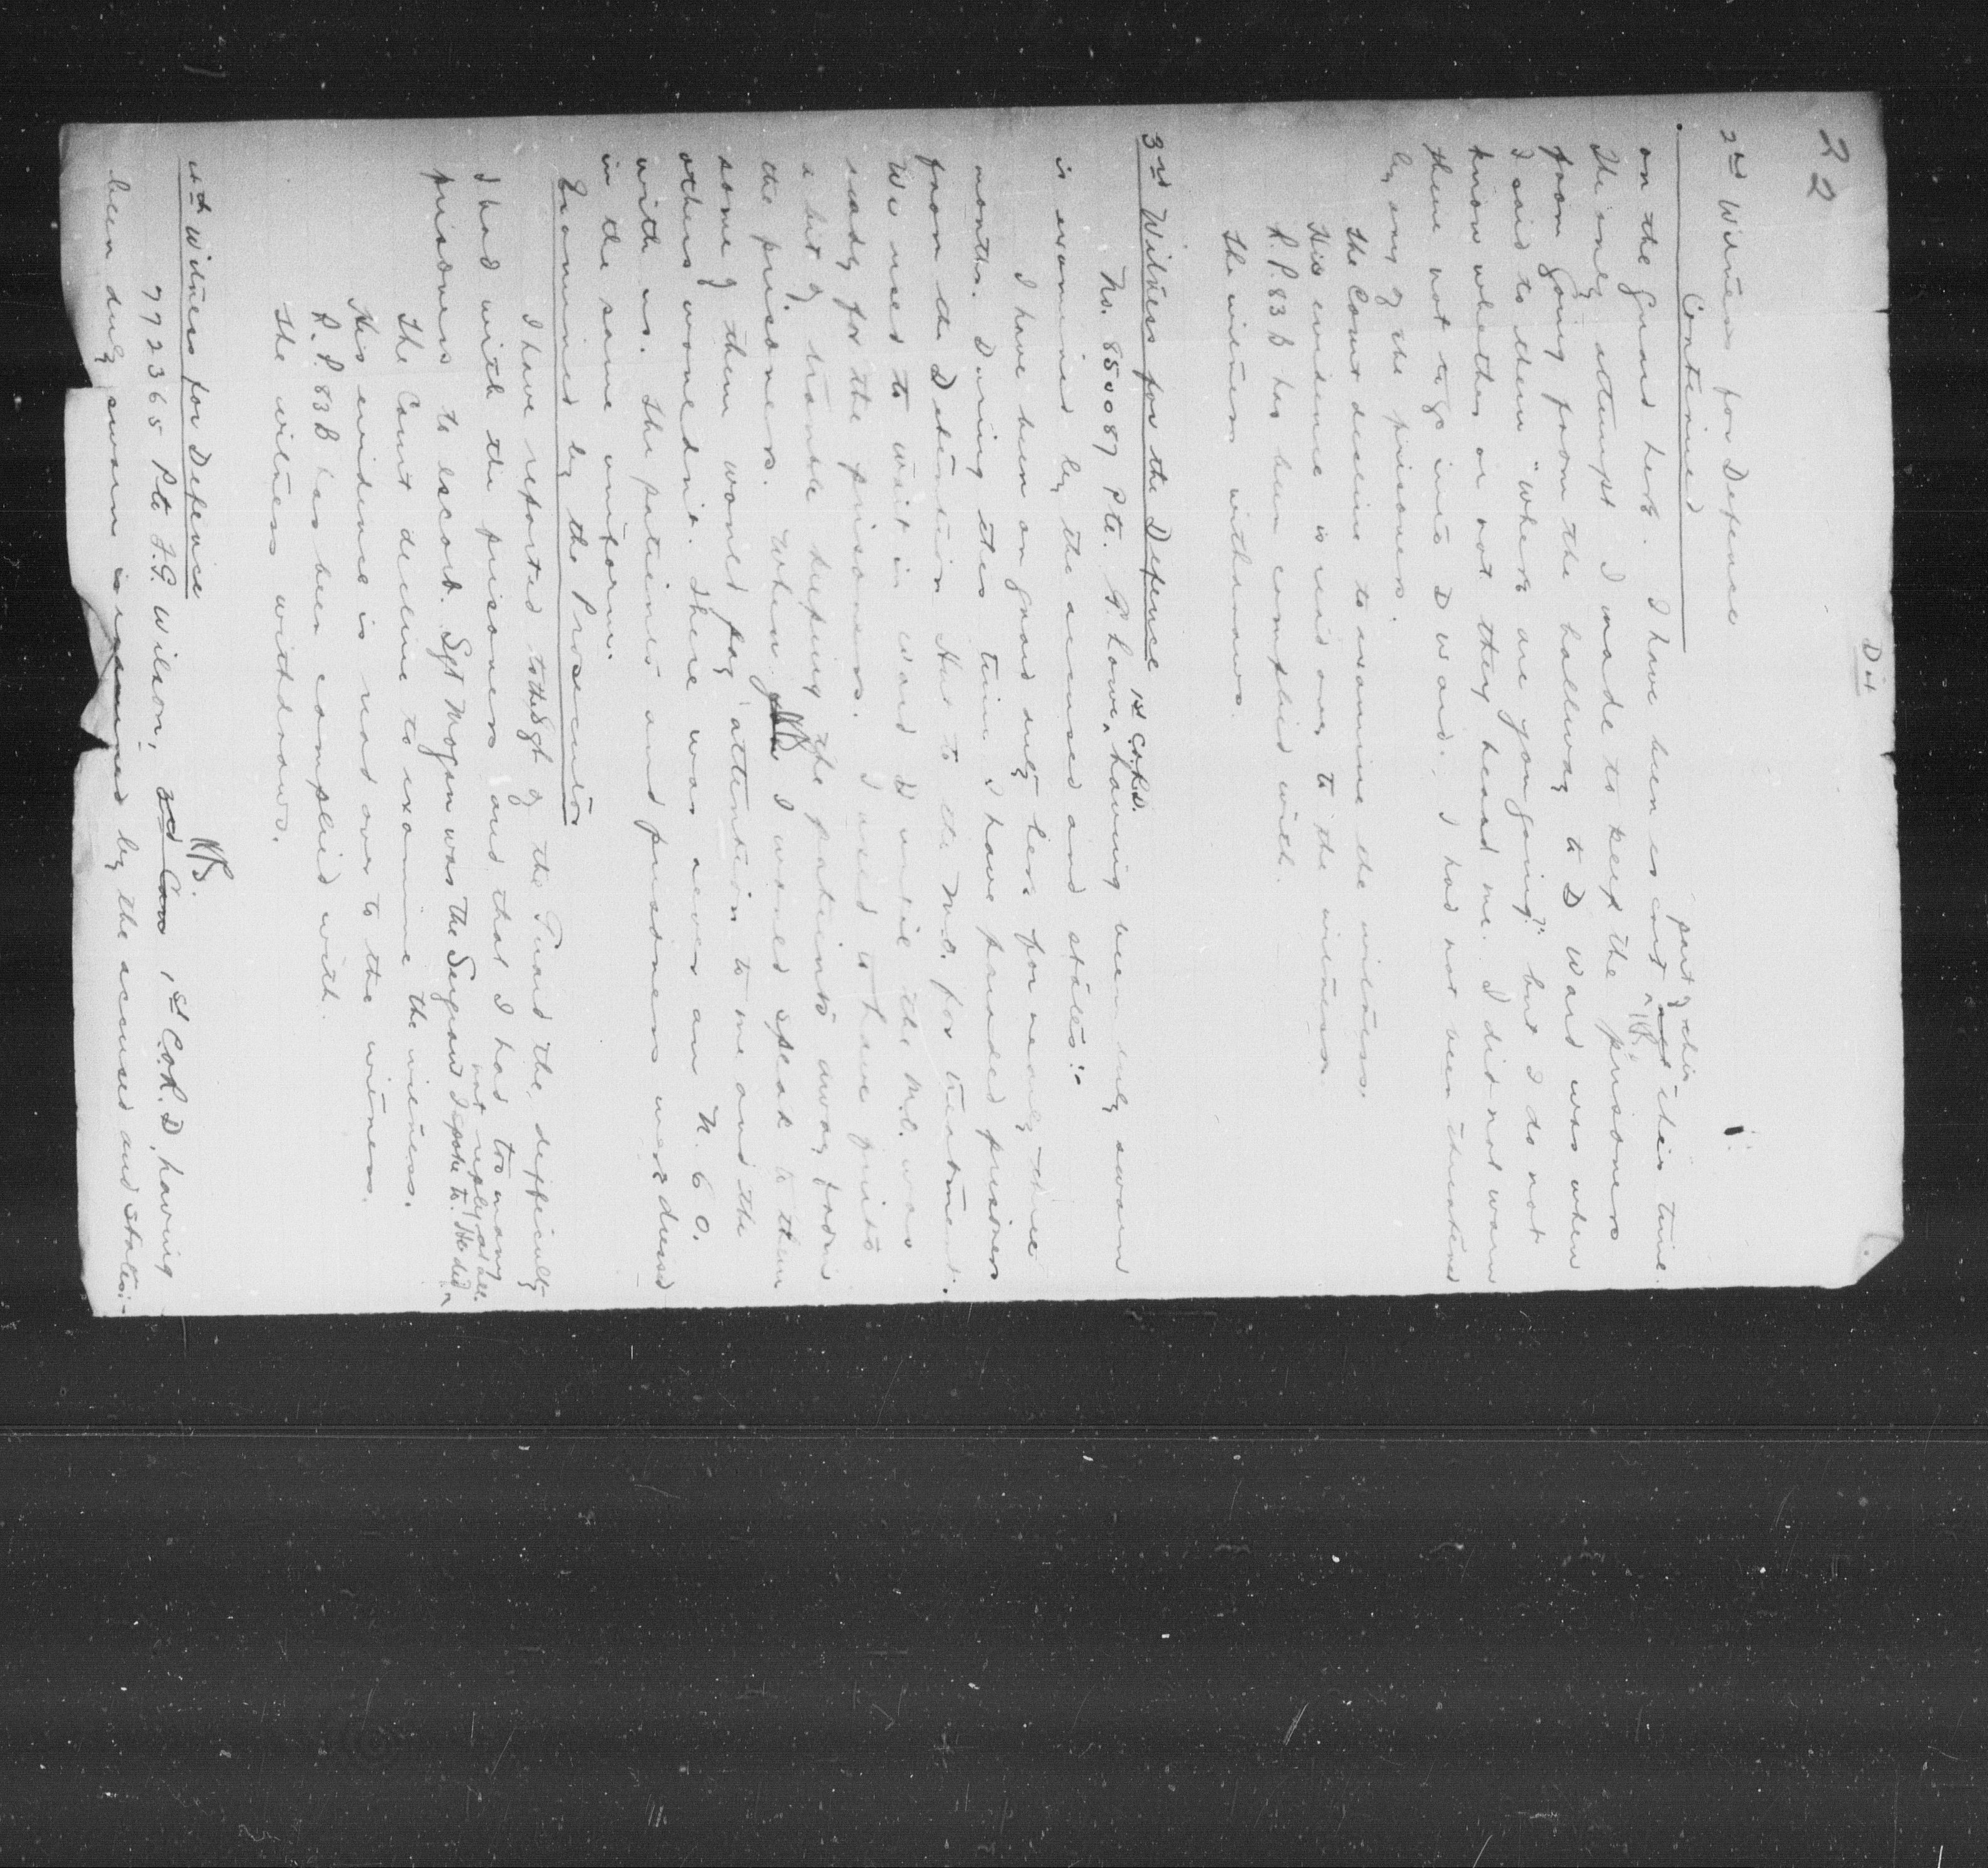 22
D 4
2nd Witness for Defence
Continued
part of this
on the Guard here. I have been escort ^ and this time.
The only attempt I made to keep the prisoners
from going from the hallway to D Ward was when
I said to them "where are you going" but I do not
know whether or not they heard me. I did not warn
them not to go into D ward. I had not been threatened
by any of the prisoners.
The Court decline to examine the witness.
His evidence is read over to the witness.
R.P. 83 B has been complied with.
The witness withdraws.
3rd Witness for the Defence 1st C.O.R.D.
No. 850087 Pte. P. Lowe, ^ having been duly sworn
is examined by the accused and states:-
I have been on guard duty here for nearly three
months. During this time I have paraded prisoners
from the Detention Hut to the M.O. for treatment.
We used to wait in ward D until the M.O. was
ready for the prisoners. I used to have quite
a bit of trouble keeping the patients away from
the prisoners. When I would speak to them
some of them would pay attention to me and the
others wouldn't. There was never an N.C.O.
with us. The patients and prisoners were dressed
in the same uniform.
Examined by the Prosecutor
I have reported to the Sgt of the Guard the difficulty
I had with the prisoners and that I had too many
not reply at all.
prisoners to escort. Sgt Mogan was the Sergeant I spoke to. He did ^
The Court decline to examine the witness.
His evidence is read over to the witness.
R.P. 83 B has been complied with.
The witness withdraws.
4th Witness for Defence
772365 Pte J.G. Wilson, 3rd Can 1st C.O.R.D. having
been duly sworn is examined by the accused and states:-